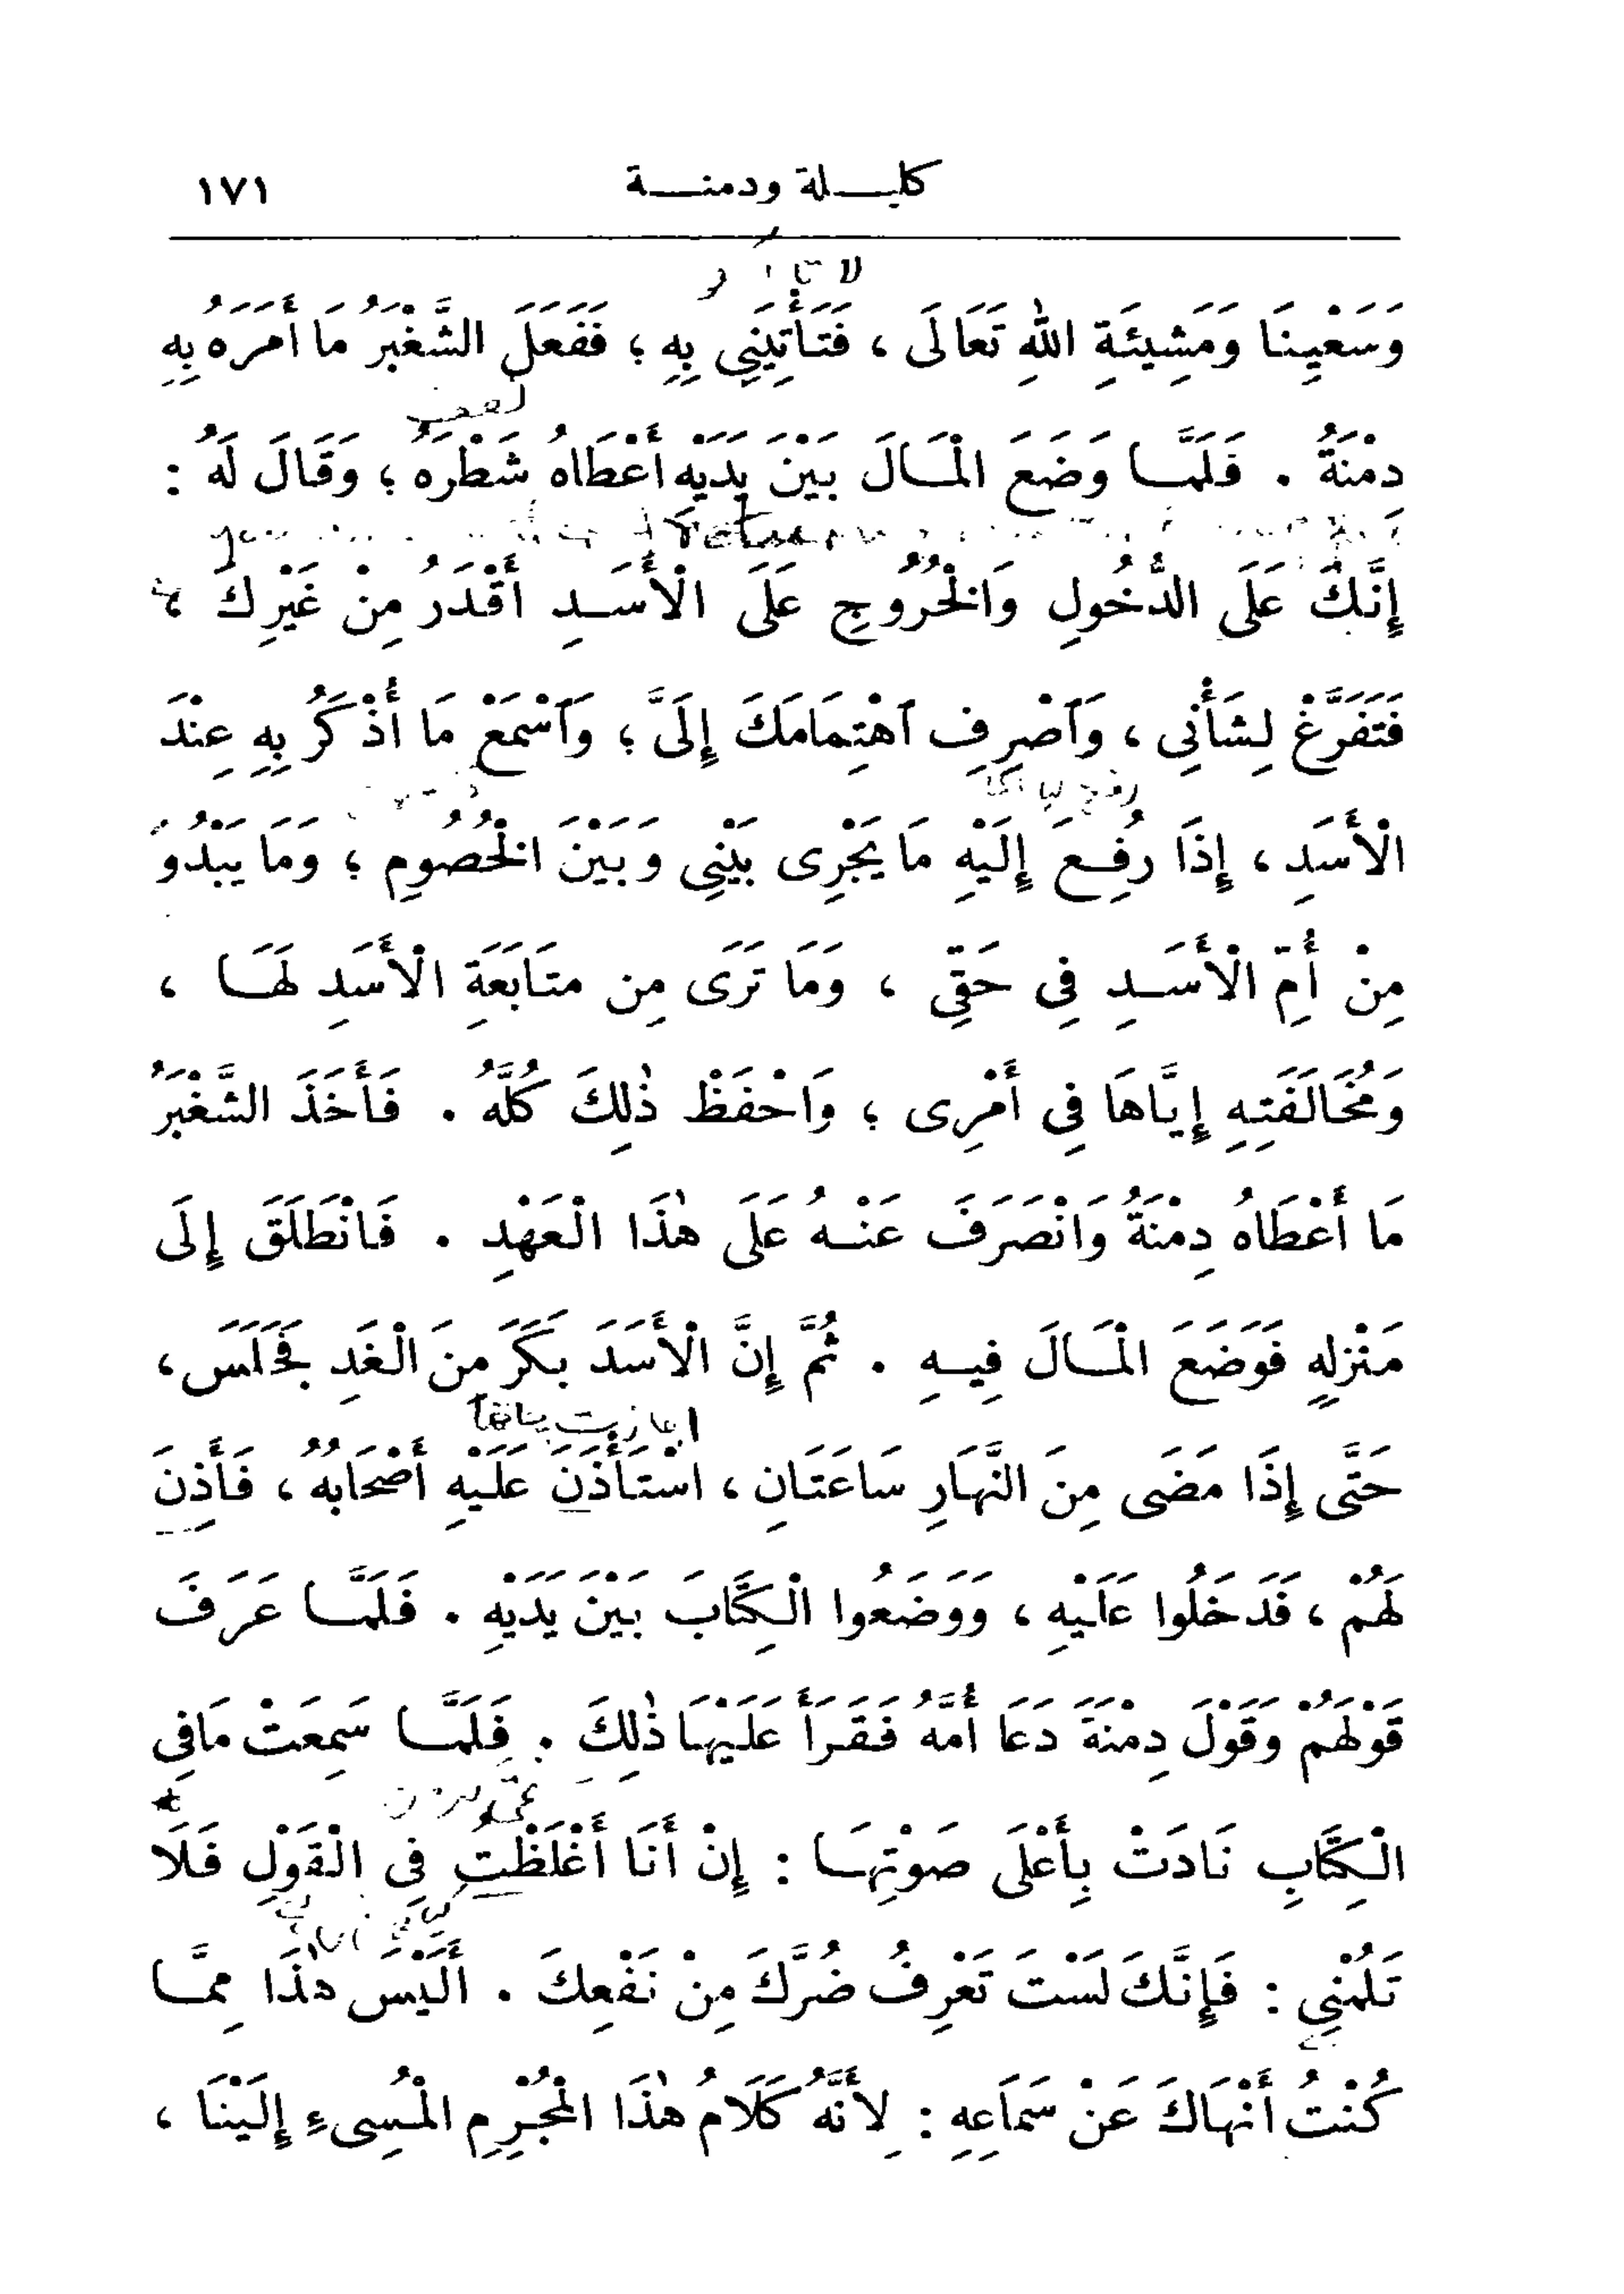 كليلة ودمنة ١٧١
وَسَعْيِنَا وَمَشِيئَةِ اللهِ تَعَالَى ، فَتَأْتِيَنِي بِهِ ؛ فَفَعَلَ الشَّغْبَرُ مَا أَمَرَهُ بِهِ
دِمْنَةُ . فَلَمَّا وَضَعَ الْمَالَ بَيْنَ يَدَيْهِ أَعْطَاهُ شَطْرَهُ ؛ وَقَالَ لَهُ :
إِنَّكَ عَلَى الدُّخُولِ وَالْخُرُوجِ عَلَى الْأَسَدِ أَقْدَرُ مِنْ غَيْرِكَ ،
فَتَفَرَّغْ لِشَأْنِى ، وَٱصْرِفِ ٱهْتِمَامَكَ إِلَىَّ ؛ وَٱسْمَعْ مَا أُذْكَرُ بِهِ عِنْدَ
الْأَسَدِ ، إِذَا رُفِعَ إِلَيْهِ مَا يَجْرِى بَيْنِى وَبَيْنَ الْخُصُومِ ؛ وَمَا يَبْدُو
مِنْ أُمِّ الْأَسَدِ فِى حَقِّى ، وَمَا تَرَى مِن متَابَعَةِ الْأَسَدِ لَهَا ،
وَمُخَالَفَتِهِ إِيَّاهَا فِى أَمْرِى ؛ وَاحْفَظْ ذٰلِكَ كُلَّهُ . فَأَخَذَ الشَّغْبَرُ
مَا أَعْطَاهُ دِمْنَةُ وَانْصَرَفَ عَنْهُ عَلَى هٰذَا الْعَهْدِ . فَانْطَلَقَ إِلَى
مَنْزِلِهِ فَوَضَعَ الْمَالَ فِيهِ . ثُمَّ إِنَّ الْأَسَدَ بَكَّرَ مِنَ الْغَدِ فَجَلَسَ ،
حَتَّى إِذَا مَضَى مِنَ النَّهَارِ سَاعَتَانِ ، اسْتَأْذَنَ عَلَيْهِ أَصْحَابُهُ ، فَأَذِنَ
لَهُمْ ، فَدَخَلُوا عَلَيْهِ ، وَوَضَعُوا الْكِتَابَ بَيْنَ يَدَيْهِ . فَلَمَّا عَرَفَ
قَوْلَهُمْ وَقَوْلَ دِمْنَةَ دَعَا أُمَّهُ فَقَرَأَ عَلَيْهَا ذٰلِكَ . فَلَمَّا سَمِعَتْ مَا فِى
الْكِتَابِ نَادَتْ بِأَعْلَى صَوْتِهَا : إِنْ أَنَا أَغْلَظْتُ فِى الْقَوْلِ فَلَا
تَلُمْنِى : فَإِنَّكَ لَسْتَ تَعْرِفُ ضُرَّكَ مِنْ نَفْعِكَ . أَلَيْسَ هٰذَا مِمَّا
كُنْتُ أَنْهَاكَ عَنْ سَمَاعِهِ : لِأَنَّهُ كَلَامُ هٰذَا الْمُجْرِمِ الْمُسِىءِ إِلَيْنَا ،